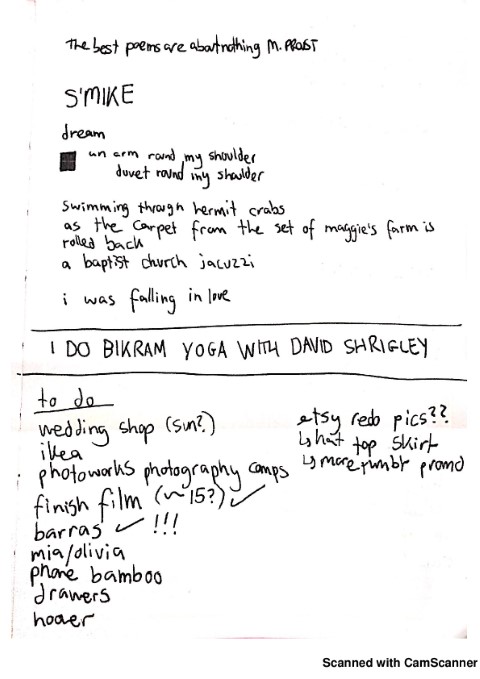 The best poems are about nothing M. PROST
S'MIKE
dream
un arm round my shoulder
duvet round my shoulder
swimming through hermit crabs
as the carpet from the set of maggie's farm is
rolled back
a baptist church jacuzzi
i was falling in love
I DO BIKRAM YOGA WITH DAVID SHRIGLEY
to do
wedding shop (sun?)
ikea
photoworks photography comps
finish film (~15?) ✓
barras ✓ !!!
mia/olivia
phone bamboo
drawers
hoover
etsy redo pics??
↳ top skirt
↳ more promo
Scanned with CamScanner